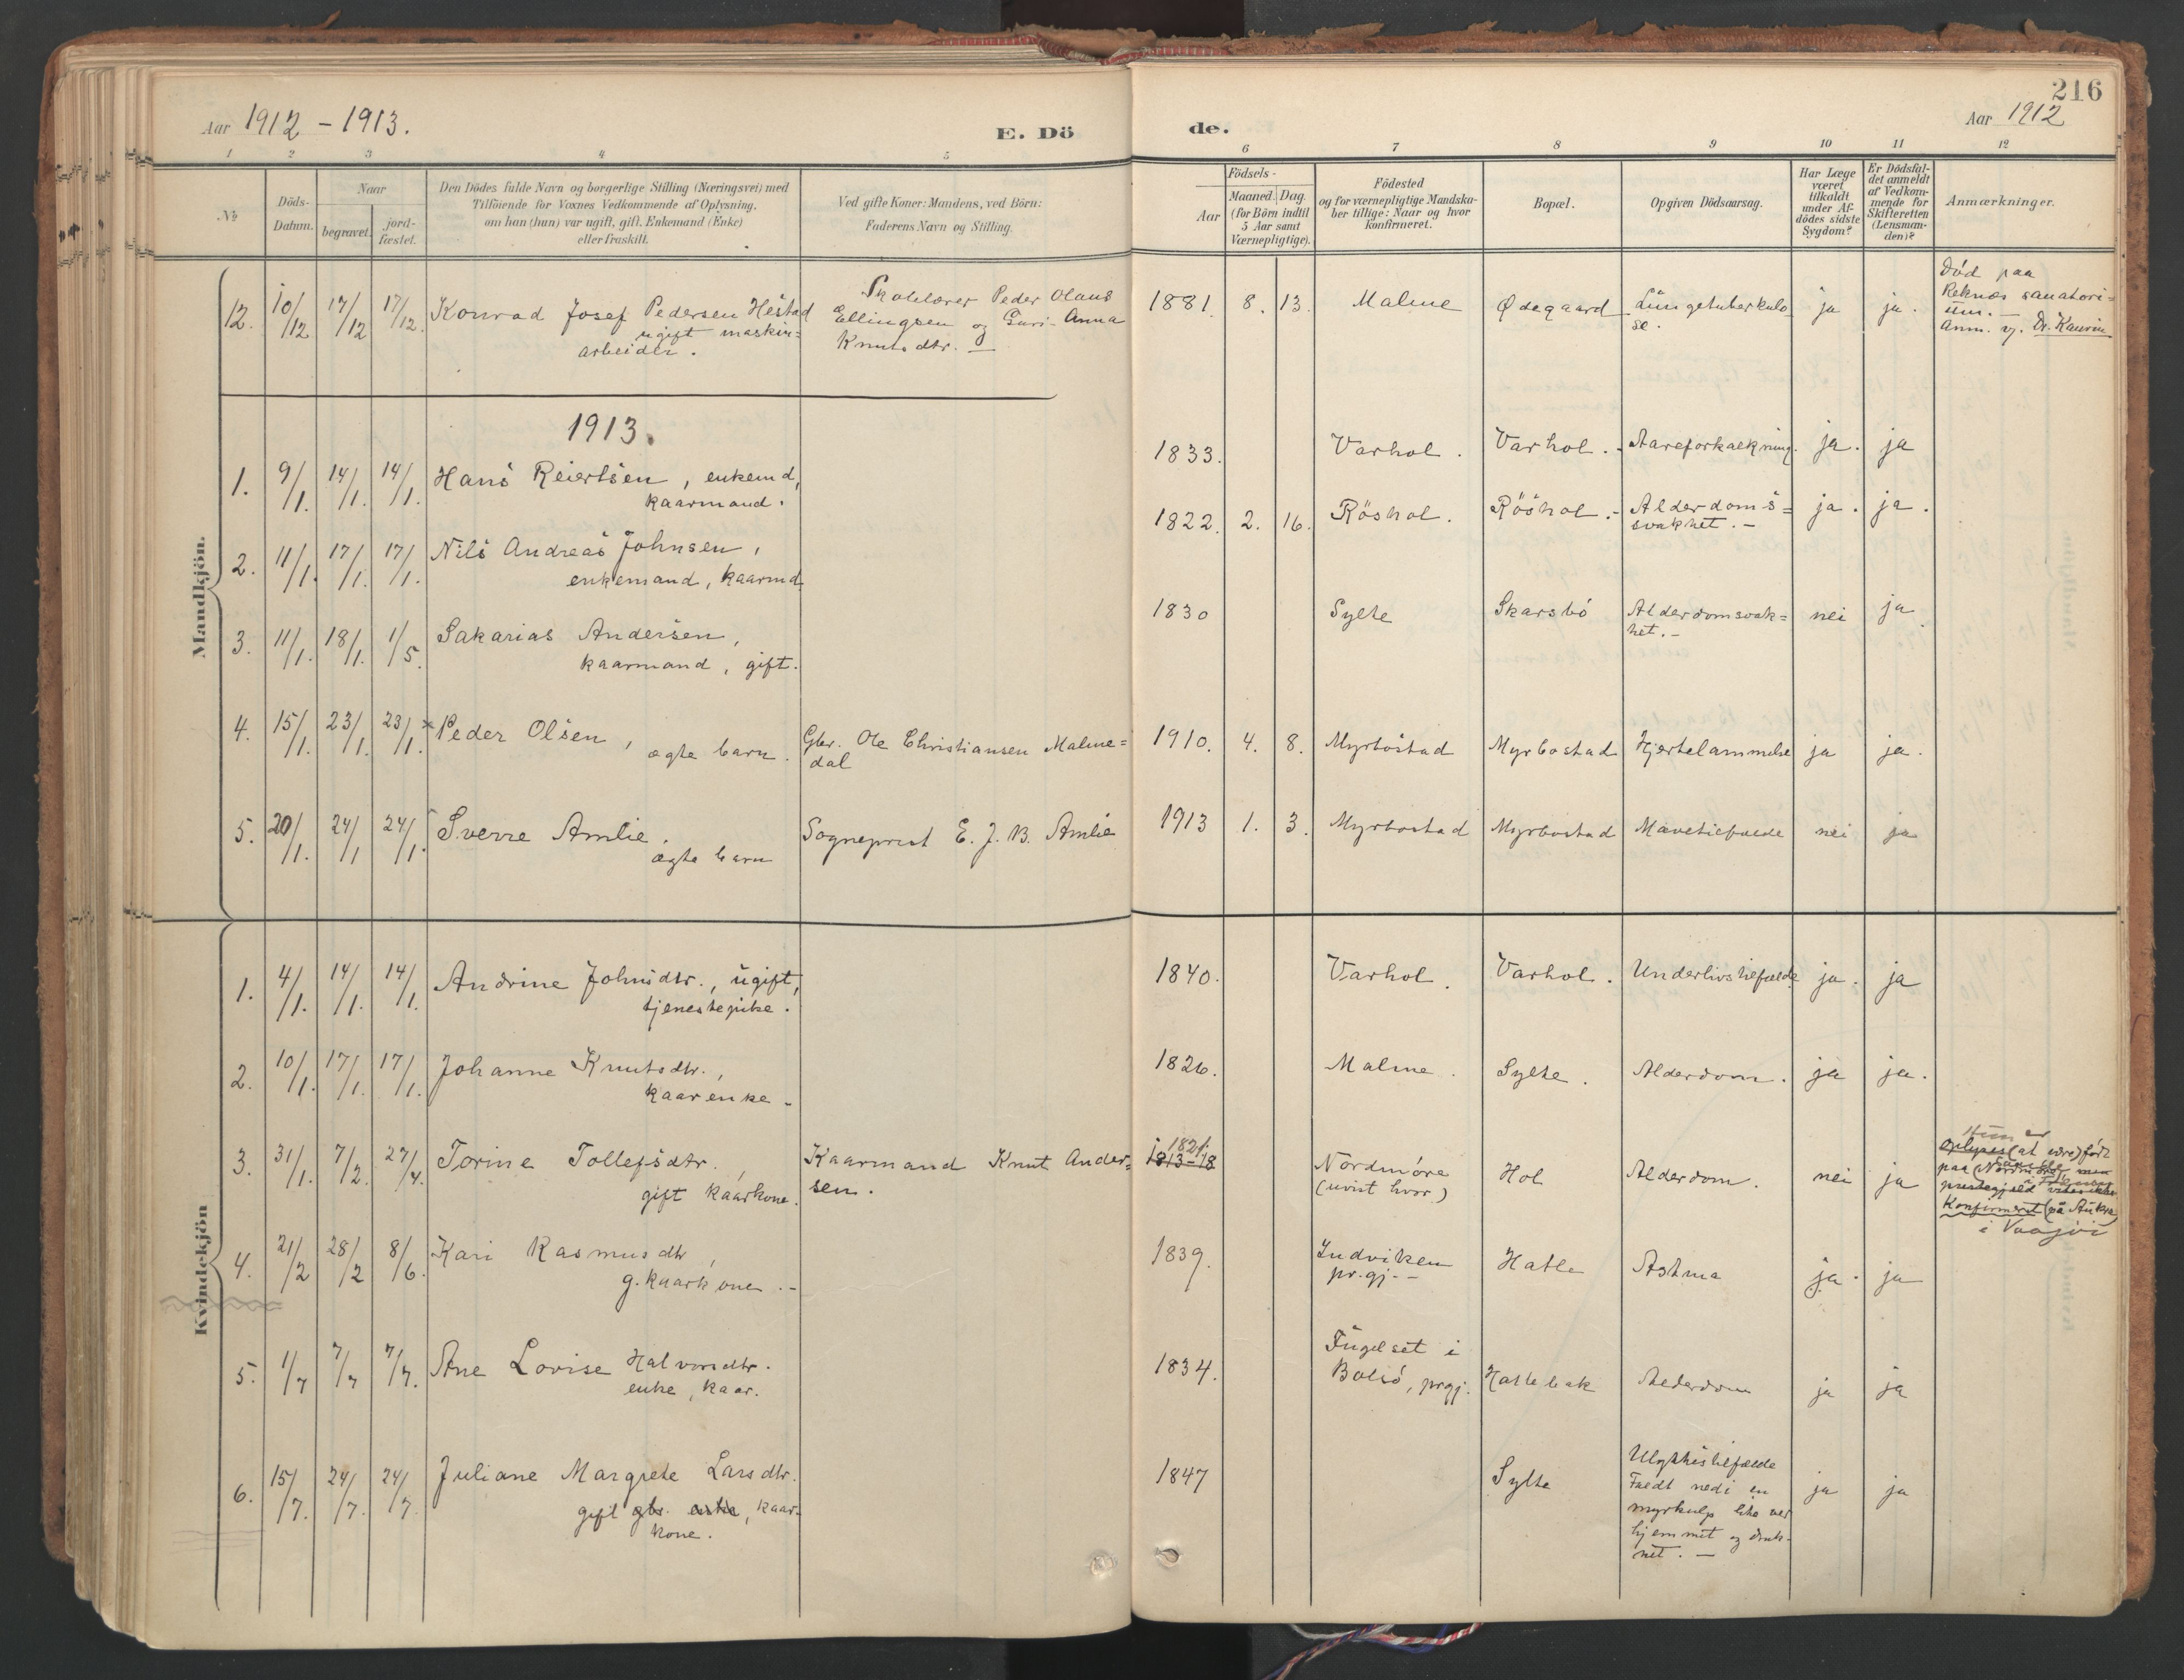 Aar 1912 - 1913.
E. Dö
de.
216
Aar 1912
1 2 3 4 5 6 7 8 9 10 11 12
№
Döds-
Datum.
Naar
begravet.
jord-
fæstet.
Den Dödes fulde Navn og borgerlige Stilling (Næringsvei) med
Tilföiende for Voxnes Vedkommende af Oplysning,
om han (hun) var ugift, gift, Enkemand (Enke)
eller fraskilt.
Ved gifte Koner: Mandens, ved Börn:
Faderens Navn og Stilling.
Födsels-
Aar
Maaned. Dag.
(for Börn indtil
5 Aar samt
Værnepligtige).
Födested
og for værnepligtige Mandska-
ber tillige: Naar og hvor
konfirmeret.
Bopæl.
Opgiven Dödsaarsag.
Har Læge
været
tilkaldt
under Af-
dödes sidste
Sygdom?
Er Dödsfal-
det anmeldt
af Vedkom-
mende for
Skifteretten
(Lensman-
den)?
Anmærkninger.
Mandkjön.
12. 10/12 17/12 17/12. Konrad Josef Pedersen Hestad
ugift maskin=
arbeider.
Skolelærer Peder Olaus
Ellingsen og Guri Anna
Knutsdtr. —
1881. 8. 13. Malme Ødegaard Lungetuberkulo
se.
ja ja.
Død paa
Reknæs sanatori=
um. —
Anm. v. Dr. Kaurin
1913.
1. 9/1. 14/1. 14/1. Hans Reiertsen, enkemd,
kaarmand.
1833. Varhol. Varhol. Aareforkalkning. ja. ja
2. 11/1. 17/1. 17/1. Nils Andreas Johnsen,
enkemand, kaarmd.
1822. 2. 16. Röshol. Röshol. Alderdoms=
svakhet. —
ja. ja.
3. 11/1. 18/1. 1/5. Sakarias Andersen,
kaarmand, gift.
1830 Sylte Skarsbö Alderdomsvak=
het. —
nei ja.
4. 15/1. 23/1. 23/1. * Peder Olsen,
ægte barn.
Gbr. Ole Christiansen Malme=
dal
1910. 4. 8. Myrböstad Myrbostad Hjertelammelse ja ja.
5. 20/1. 24/1 24/1. Sverre Amlie.
ægte barn
Sogneprest E. J. B. Amlie
1913 1. 3. Myrbostad Myrbostad Mavetilfælde nei ja
Kvindekjön
1. 4/1. 14/1. 14/1. Andrine Johnsdtr., ugift,
tjenestepike.
1840. Varhol. Varhol. Underlivstilfælde ja. ja
2. 10/1. 17/1. 17/1. Johanne Knutsdtr.,
kaarenke.
1826. Malme. Sylte. Alderdom. ja ja.
3. 31/1. 7/2. 27/4. Torine Tollefsdtr.,
gift kaarkone.
Kaarmand Knut Ander=
sen.
1821.
1813-18
Nordmøre
(uvist hvor)
Hol Alderdom. nei ja
Hun er
oplyses (at være) født
paa (Nordmøre men
prestegjeld vites ikke.
Konfirmeret (på Aukra)
i Vaagøi
4. 21/2 28/2 8/6. Kari Rasmusdtr,
g. kaarkone. -
1839. Indviken
pr.gj. -
Hatle Astma ja. ja
5. 1/7 7/7 7/7. Ane Lovise Halvorsdtr.
enke, kaar.
1834. Fugelset i
Bolsö, prgj.
Hattebak Alderdom ja ja
6. 15/7. 24/7. 24/7 Juliane Margrete Larsdtr.
gift gbr. enke, kaar-
kone.
1847 Sylte Ulykkestilfælde
Faldt nedi en
myrkulp like ved
hjemmet og druk-
net. —
ja ja